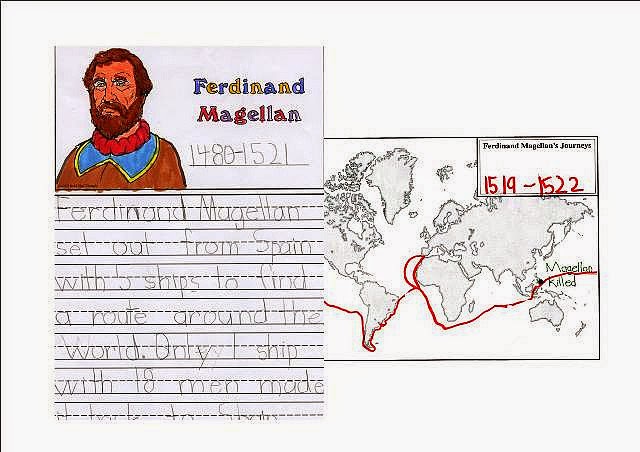 Ferdinand
Magellan
1480-1521
Ferdinand Magellan
set out from Spain
with 5 ships to find
a route around the
World. Only 1 ship
with 18 men made
it back to Spain
Ferdinand Magellan's Journeys
1519-1522
Magellan
Killed